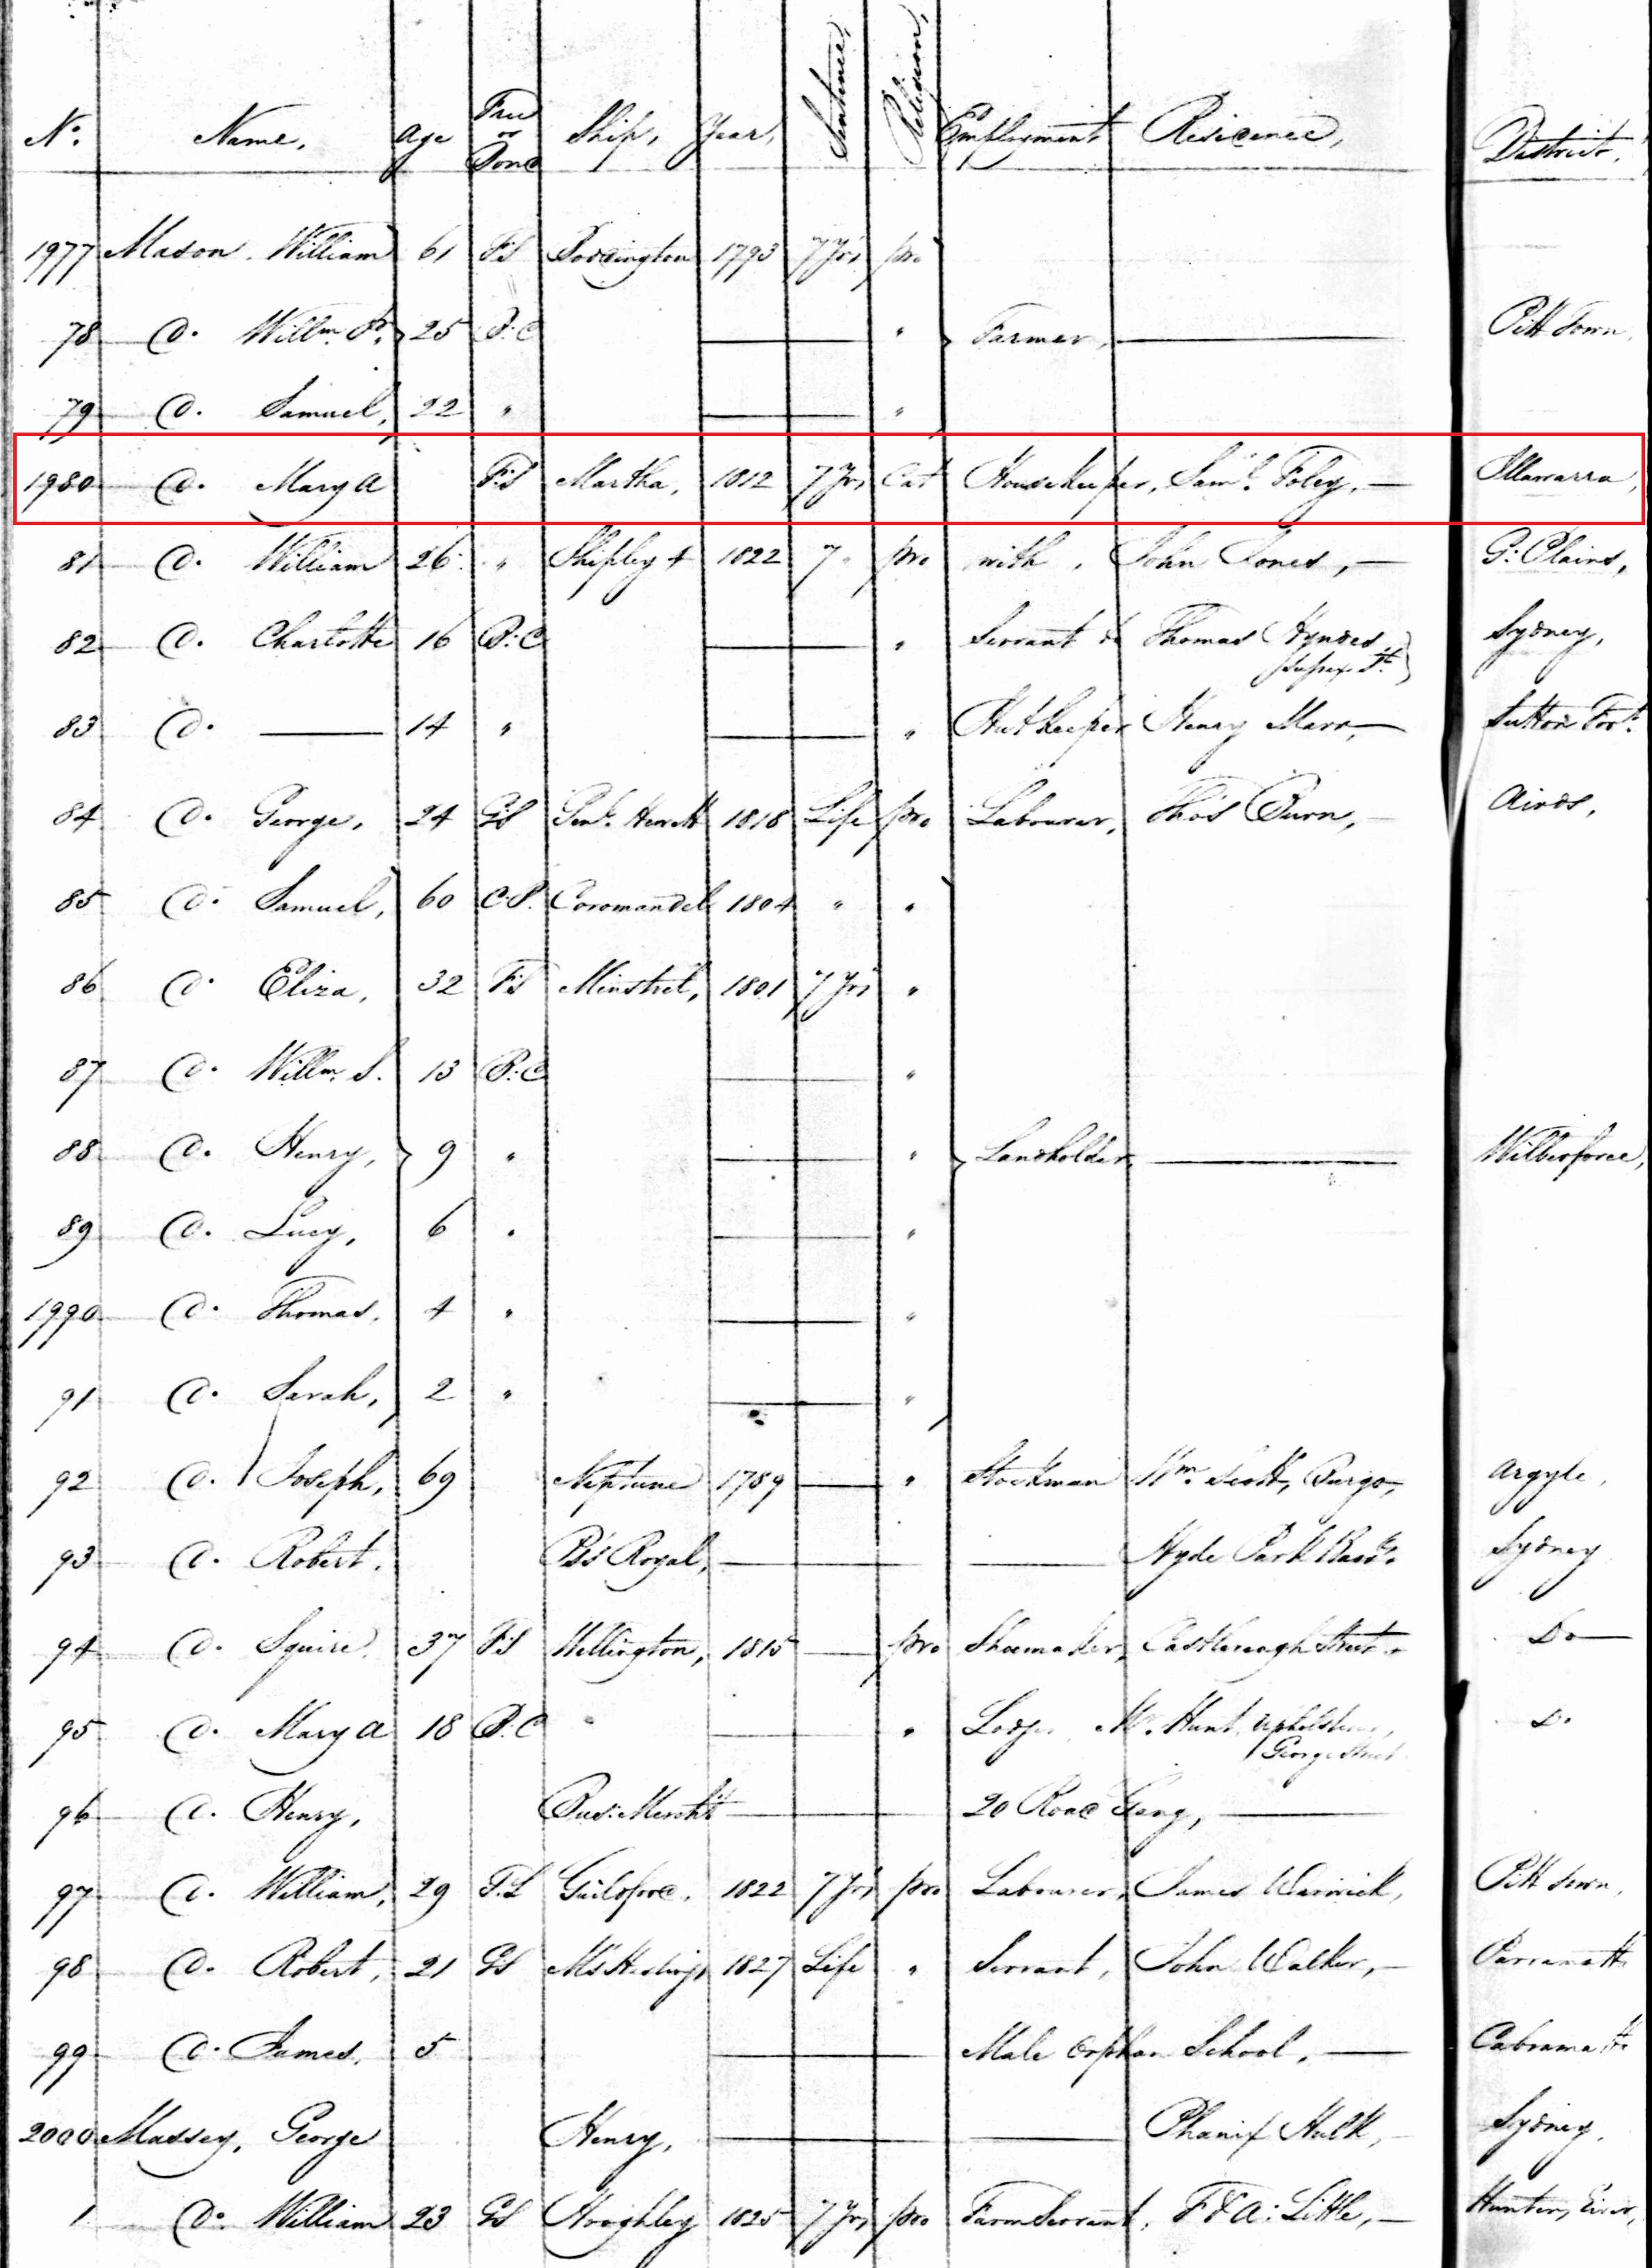 No. Name, Age Free or Bond Ship, Year, Sentence, Religion, Employment Residence, District,
1977 Mason William 61 F.S 1793 7 Yrs pro
78 Do. Willm. 25 B.C " Farmer, Pitt Town,
79 Do. Samuel, 22 " "
1980 Do. Mary A F.S Martha, 1812 7 Yrs Cat Housekeeper, Saml. Foley, Illawarra,
81 Do. William 26 " Shipley 4 1822 7 " pro with, John Jones, G. Plains,
82 Do. Charlotte 16 B.C " Servant to Thomas Hyndes Sydney,
Sussex St.
83 Do. 14 " " Hutkeeper Henry Marr, Sutton Fort.
84 Do. George, 24 G.S Genl. Hewitt 1818 Life pro Labourer, Thos Burn, Airds,
85 Do. Samuel, 60 C.P. Coromandel 1804 " "
86 Do. Eliza, 32 F.S Minstrel, 1801 7 Yrs "
87 Do. Willm. S. 13 B.C "
88 Do. Henry, 9 " " Landholder, Wilberforce,
89 Do. Lucy, 6 " "
1990 Do. Thomas, 4 " "
91 Do. Sarah, 2 " "
92 Do. Joseph, 69 Neptune 1789 " Stockman Wm. Scott, Bargo, Argyle,
93 Do. Robert. Ps Royal, Hyde Park Sydney
94 Do. Squire. 37 F.S Wellington, 1815 pro Shoemaker, Castlereagh Street Do
95 Do. Mary A 18 B.C " Mr. Hunt, Do
George Street
96 Do. Henry, 20 Road Gang,
97 Do. William, 29 T.L Guildford. 1822 7 Yrs pro Labourer, James Warwick, Pitt Town,
98 Do. Robert, 21 G.S Ms Hastings 1827 Life " Servant, John Walker, Parramatta
99 Do. James, 5 Male Orphan School, Cabramatta
2000 Massey, George Henry, Phœnix Hulk, Sydney,
1 Do. William 23 G.S Hooghley 1825 7 Yrs pro Farm Servant, F & A: Little, Hunters River,